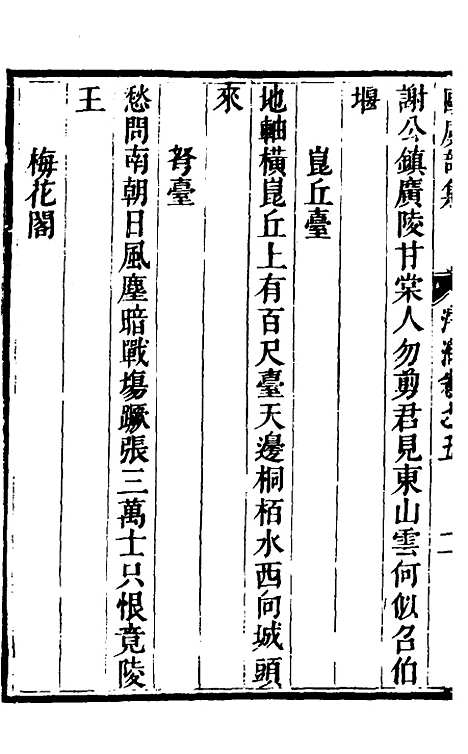 謝公鎮廣陵甘棠人勿剪君見東山雲何似召伯
堰
崑丘臺
地軸橫崑丘上有百尺臺天邊桐栢水西向城頭
來
弩臺
愁問南朝日風塵暗戰塲蹶張三萬士只恨竟陵
王
梅花閣